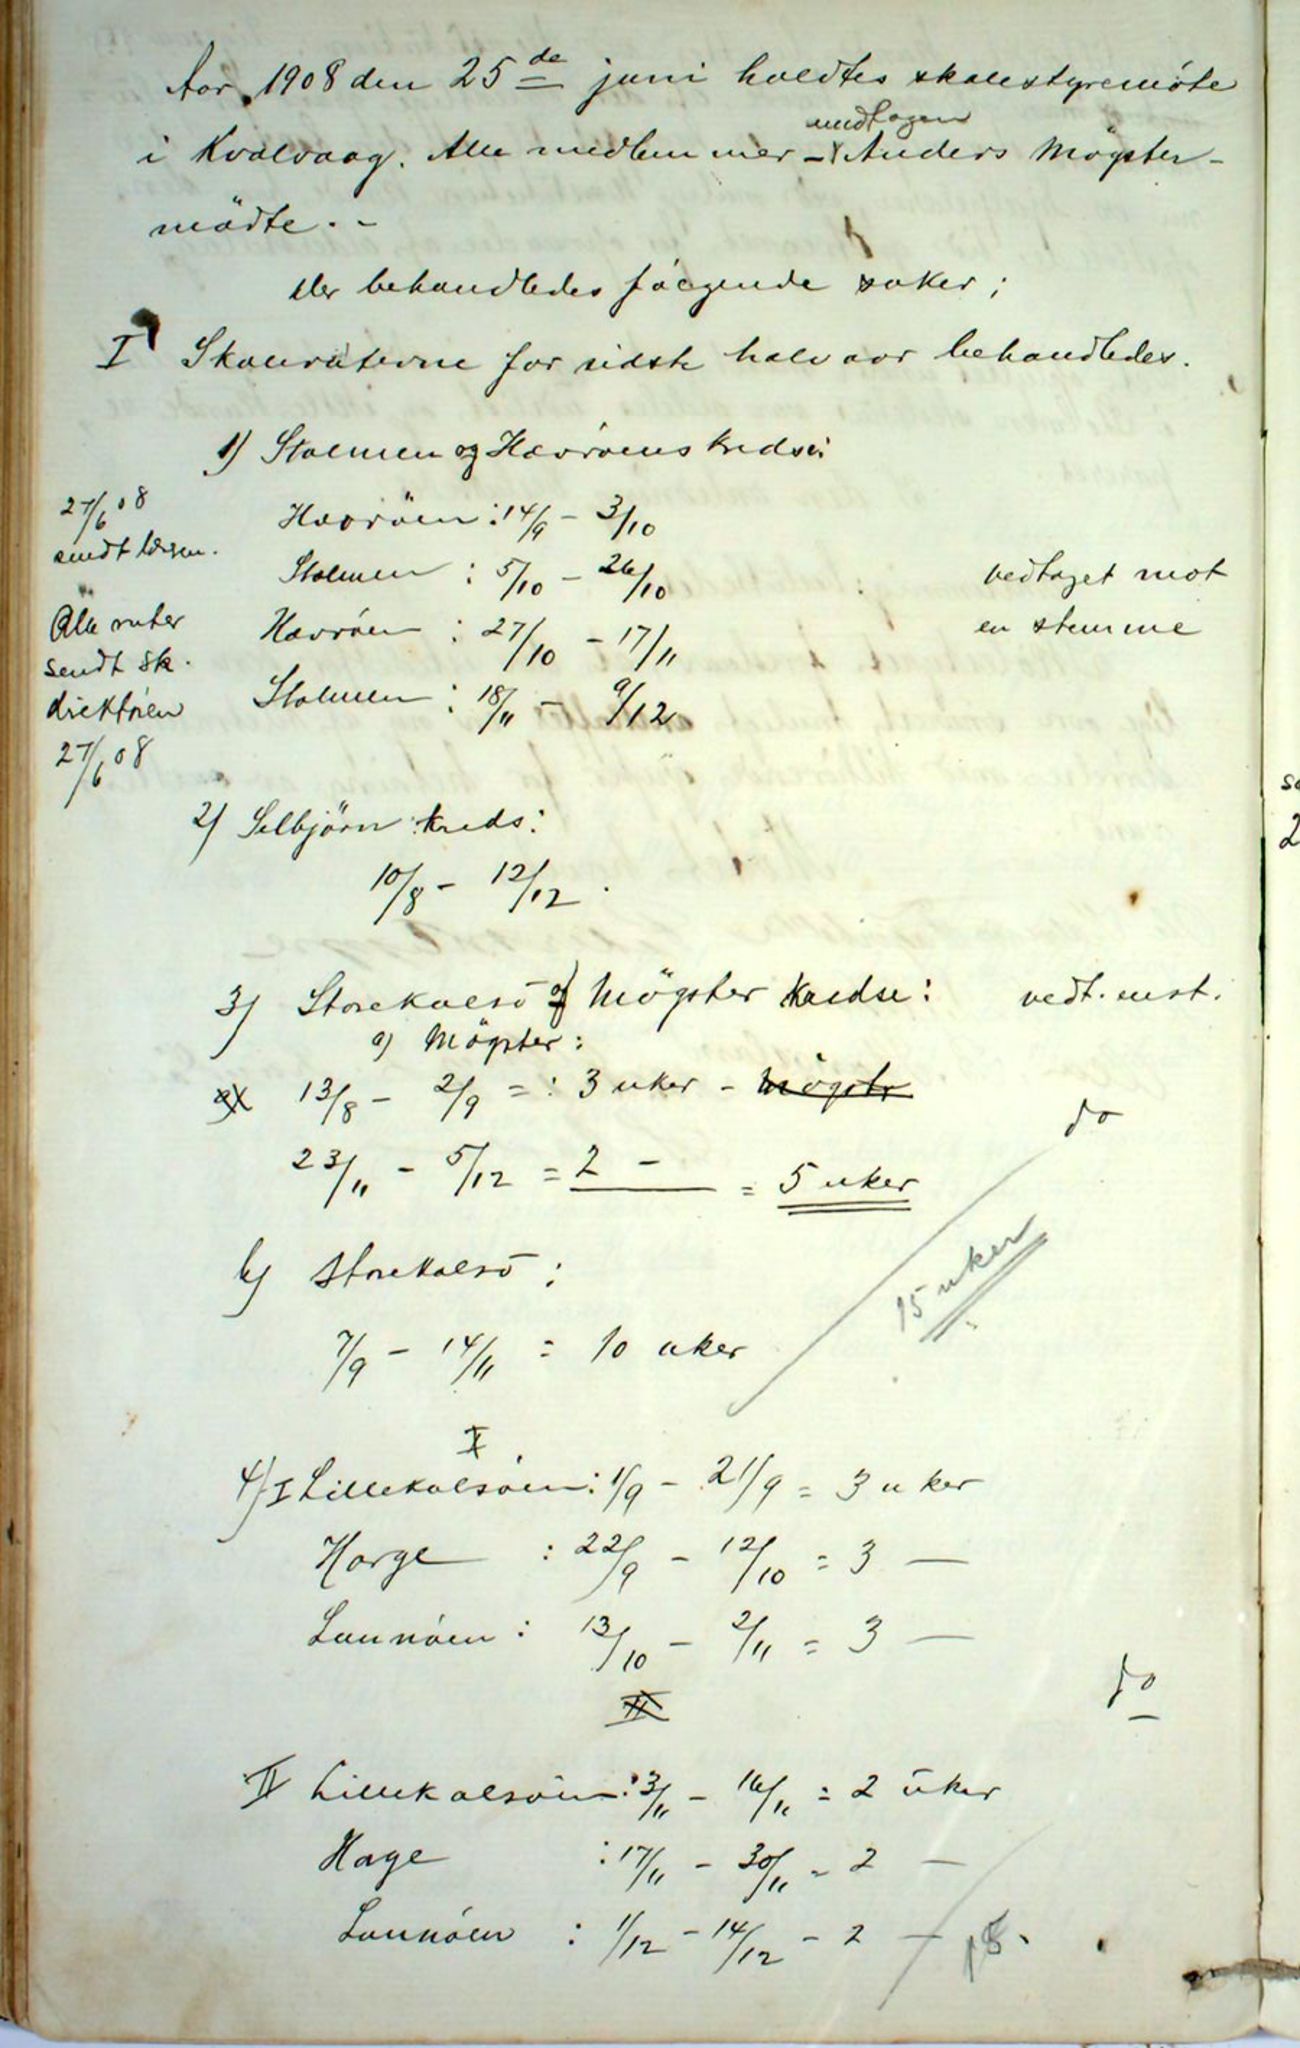 Aar 1908 den 25de juni holdtes skolestyremöte
i Kvalvaag. Alle medlemmer - undtagen Anders Mögster -
mödte. -
Der behandledes fölgende saker;
I Skoleruterne for sidste halvaar behandledes.
1) Stolmen og Hevröens kredse:
27/6 08
sendt lærsen.
Hevröen : 14/9 - 3/10
Stolmen : 5/10 - 26/10
vedtaget mot
en stemme
Alle ruter
sendt sk.
direktören
27/6 08
Hevröen : 27/10 - 17/11
Stolmen : 18/11 - 9/12
2) Selbjörn kreds:
10/8 - 12/12.
3) Storekalsö og Mögster kredse:
vedt. enst.
a) Mögster:
13/8 - 2/9 = : 3 uker - Mögstr
do
23/11 - 5/12 = 2 - = 5 uker
15 uker
b) Storekalsö :
7/9 - 14/11 = 10 uker
I
4) I Lillekalsöen : 1/9 - 21/9 = 3 uker
Horge : 22/9 - 12/10 = 3 —
Lunnöen : 13/10 - 2/11 = 3 —
II
do
II Lillekalsöen : 3/11 - 16/11 = 2 uker
Hage : 17/11 - 30/11 - 2 —
Lunnöen : 1/12 - 14/12 - 2 —
15.
2